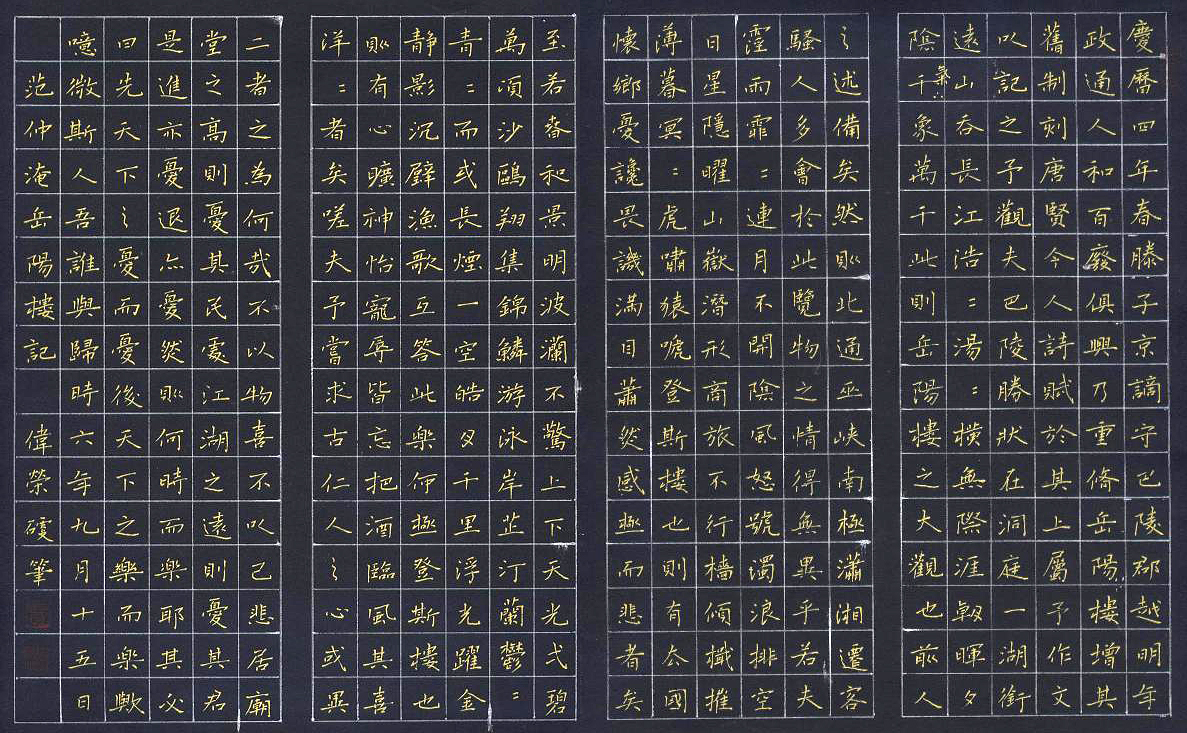 慶曆四年春滕子京謫守巴陵郡越明年
政通人和百廢俱興乃重脩岳陽樓增其
舊制刻唐賢今人詩賦於其上屬予作文
以記之予觀夫巴陵勝狀在洞庭一湖銜
遠山吞長江浩〻湯〻橫無際涯朝暉夕
陰千氣象萬千此則岳陽樓之大觀也前人
〻述備矣然則北通巫峽南極瀟湘遷客
騷人多會於此覽物之情得無異乎若夫
霪雨霏〻連月不開陰風怒號濁浪排空
日星隱曜山嶽潛形商旅不行檣傾檝摧
薄暮冥〻虎嘯猿唬登斯樓也則有去國
懷鄉憂讒畏譏滿目蕭然感極而悲者矣
至若春和景明波瀾不驚上下天光弌碧
萬頃沙鷗翔集錦鱗游泳岸芷汀蘭鬱〻
青〻而或長煙一空皓月千里浮光躍金
静影沉璧漁歌互答此樂何極登斯樓也
則有心曠神怡寵辱皆忘把酒臨風其喜
洋〻者矣嗟夫予嘗求古仁人〻心或異
二者之為何哉不以物喜不以己悲居廟
堂之高則憂其民處江湖之遠則憂其君
是進亦憂退亦憂然則何時而樂耶其必
曰先天下〻憂而憂後天下之樂而樂歟
噫微斯人吾誰與歸時六年九月十五日
范仲淹岳陽樓記 偉榮硬筆